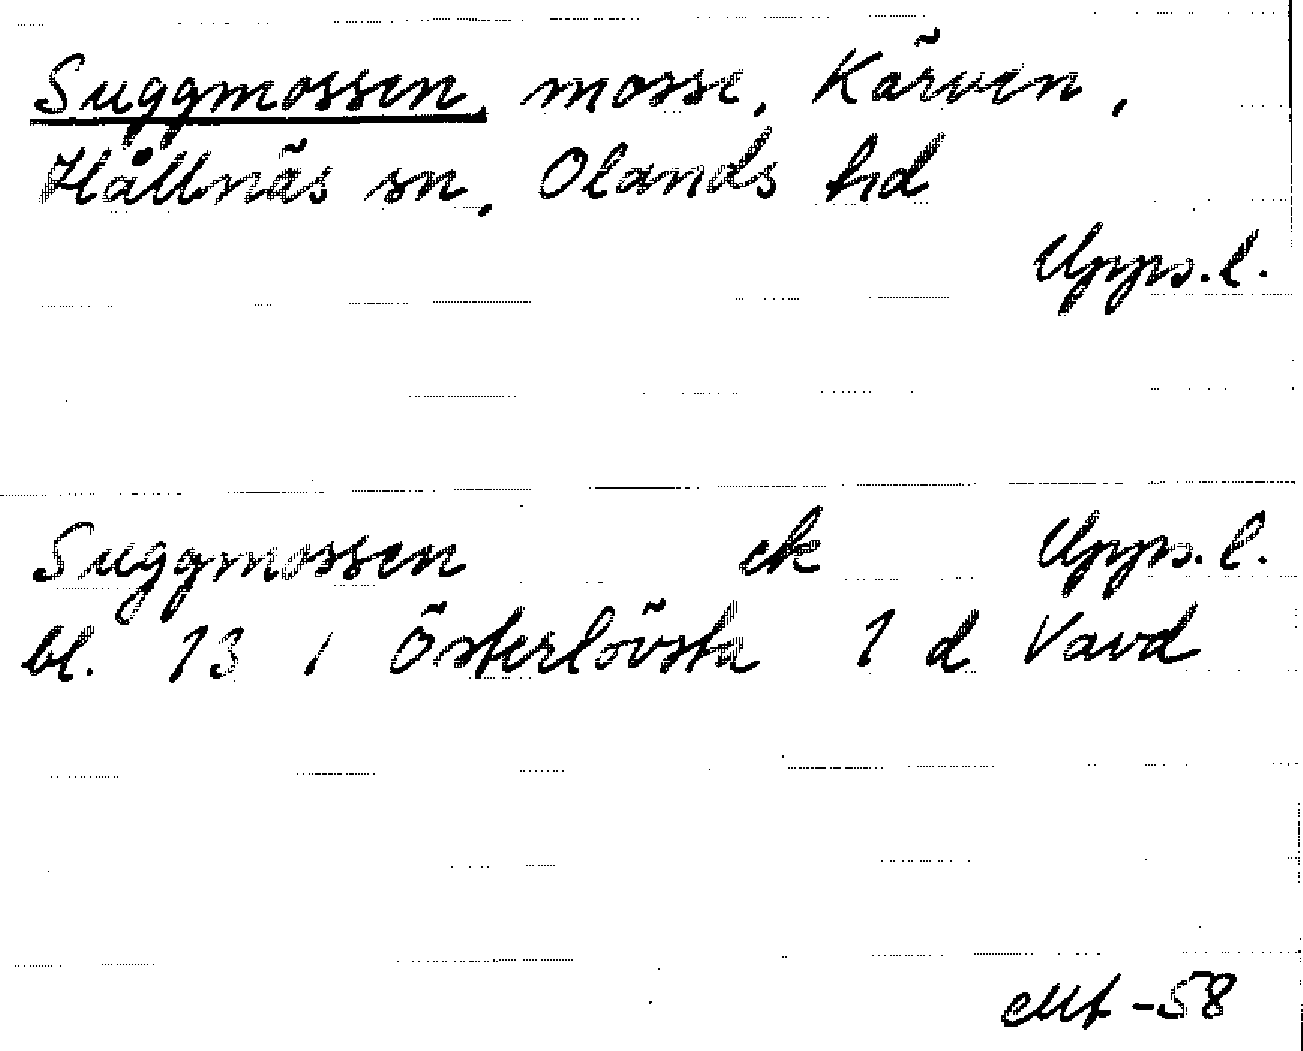 Suggmossen, mosse, Kärven,
Hållnäs sn, Olands hd
Upps.l.
Suggmossen ek Upps.l.
bl. 13 i Österlövsta 1 d Vavd
-58